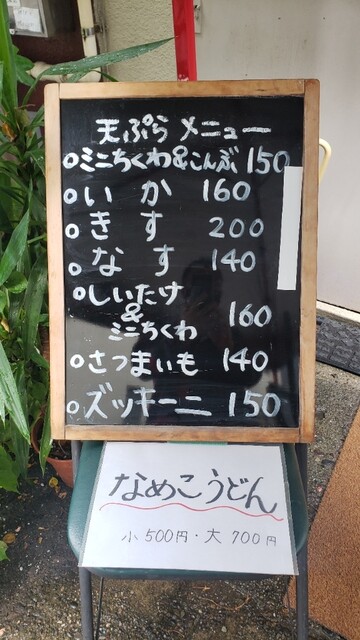 天ぷら メニュー
○ミニちくわ&こんぶ 150
○いか 160
○きす 200
○なす 140
○しいたけ
&
ミニちくわ 160
○さつまいも 140
○ズッキーニ 150
なめこうどん
小500円・大700円